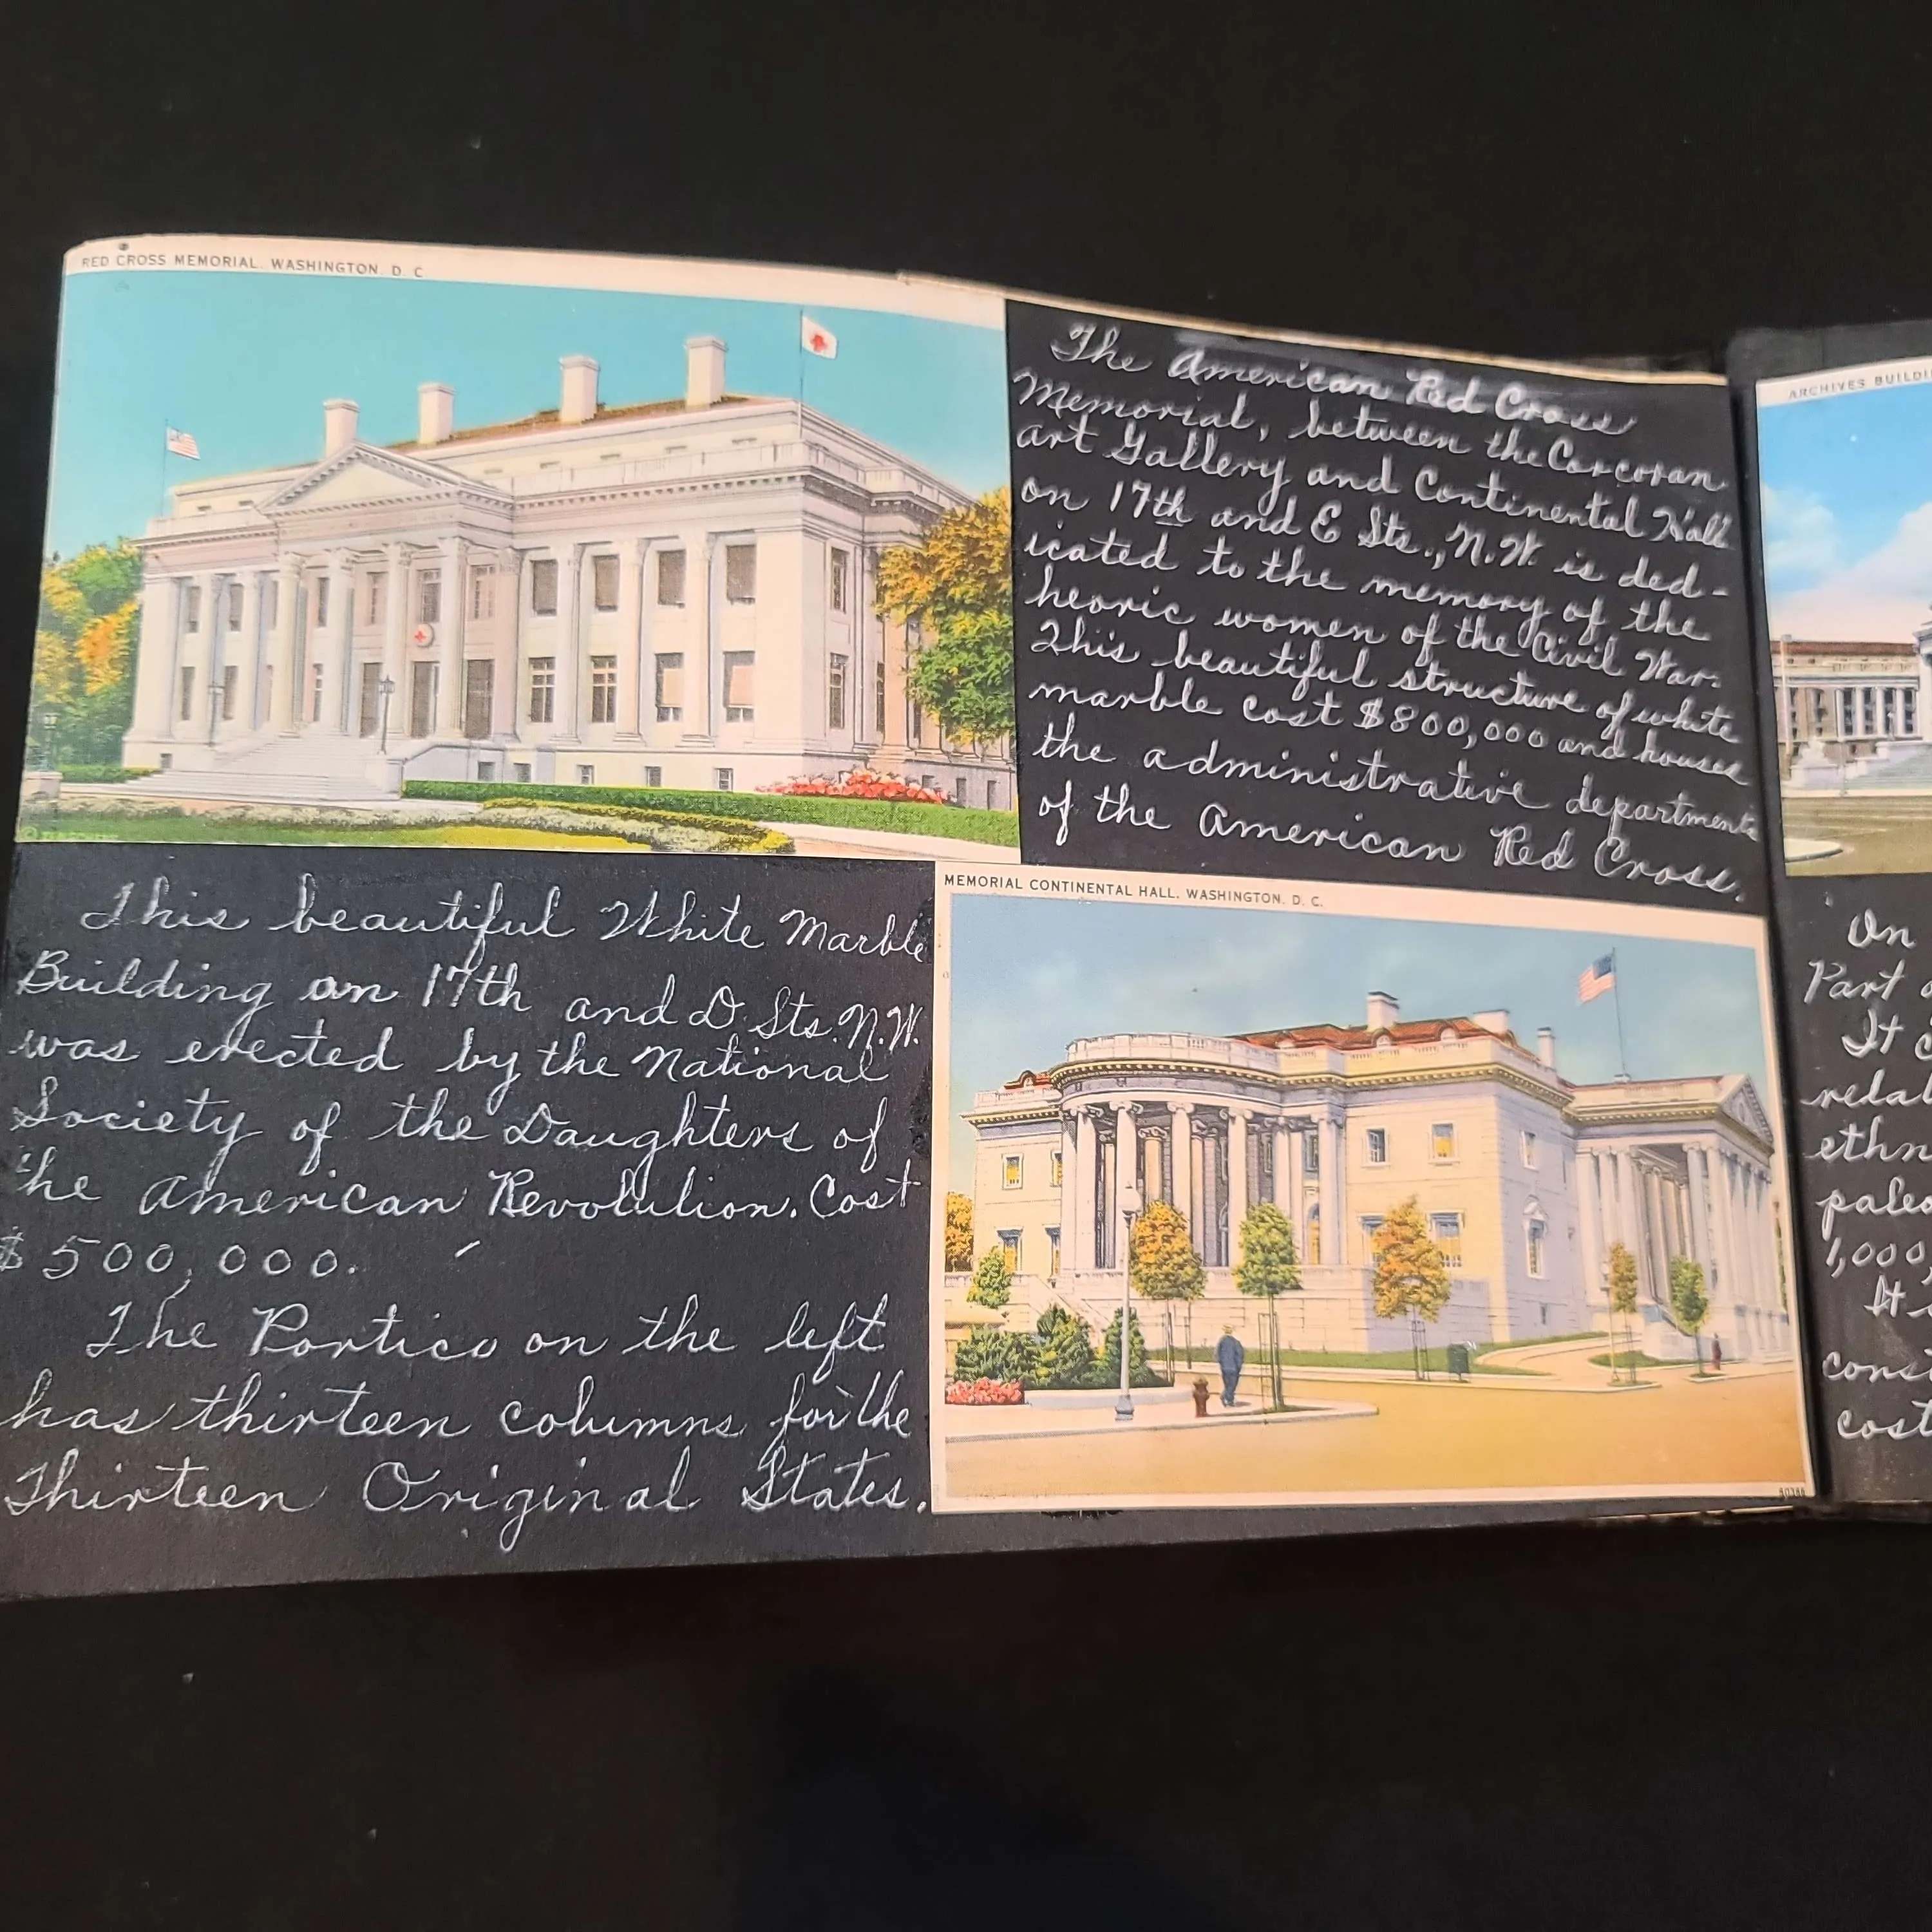 RED CROSS MEMORIAL. WASHINGTON. D. C.
The American Red Cross
Memorial, between the Corcoran
Art Gallery and Continental Hall
on 17th and E Sts., N.W. is ded-
icated to the memory of the
heoric women of the Civil War.
This beautiful structure of white
marble cost $800,000 and houses
the administrative departments
of the American Red Cross.
This beautiful White Marble
Building on 17th and D. Sts. N.W.
was erected by the National
Society of the Daughters of
the American Revolution. Cost
$500,000.
The Portico on the left
has thirteen columns for the
Thirteen Original States.
MEMORIAL CONTINENTAL HALL, WASHINGTON, D. C.
ARCHIVES BUILDI
On
Part
It
ethn
1,000,
It
cons
cost